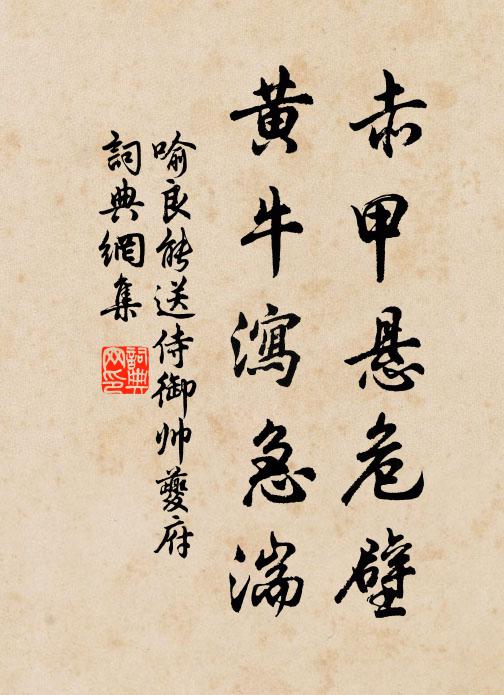 赤甲悬危壁
黄牛瀉急湍
喻良能送侍御帅夔府
詞典網集
詞典网印